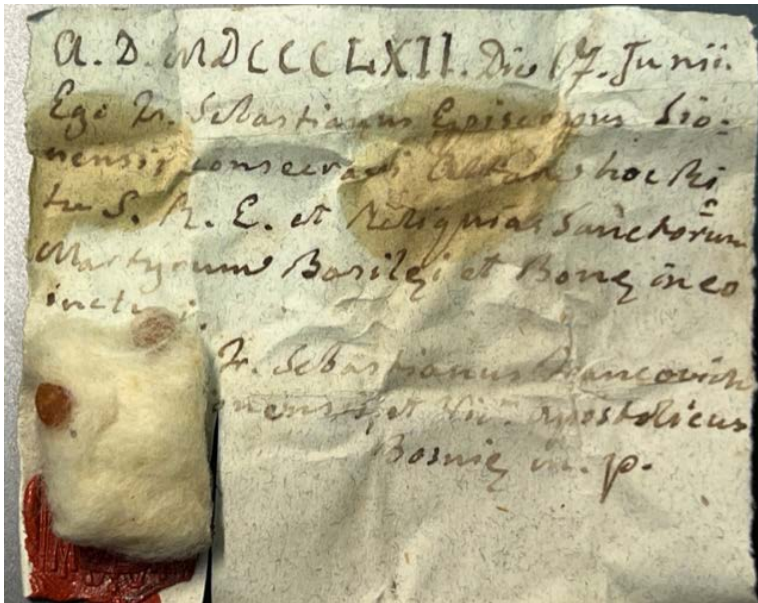 A. D. MDCCCLXII. Die 17. Junii.
Ego Fr. Sebastianus Episcopus Sio-
nensis consecravi Altare hoc Ri-
tu S. R. E. et Reliquias Sanctorum
Martyrum Basilęi et Bonę in eo
Fr. Sebastianus
et Vic. Apostolicus
Bosnię m. p.